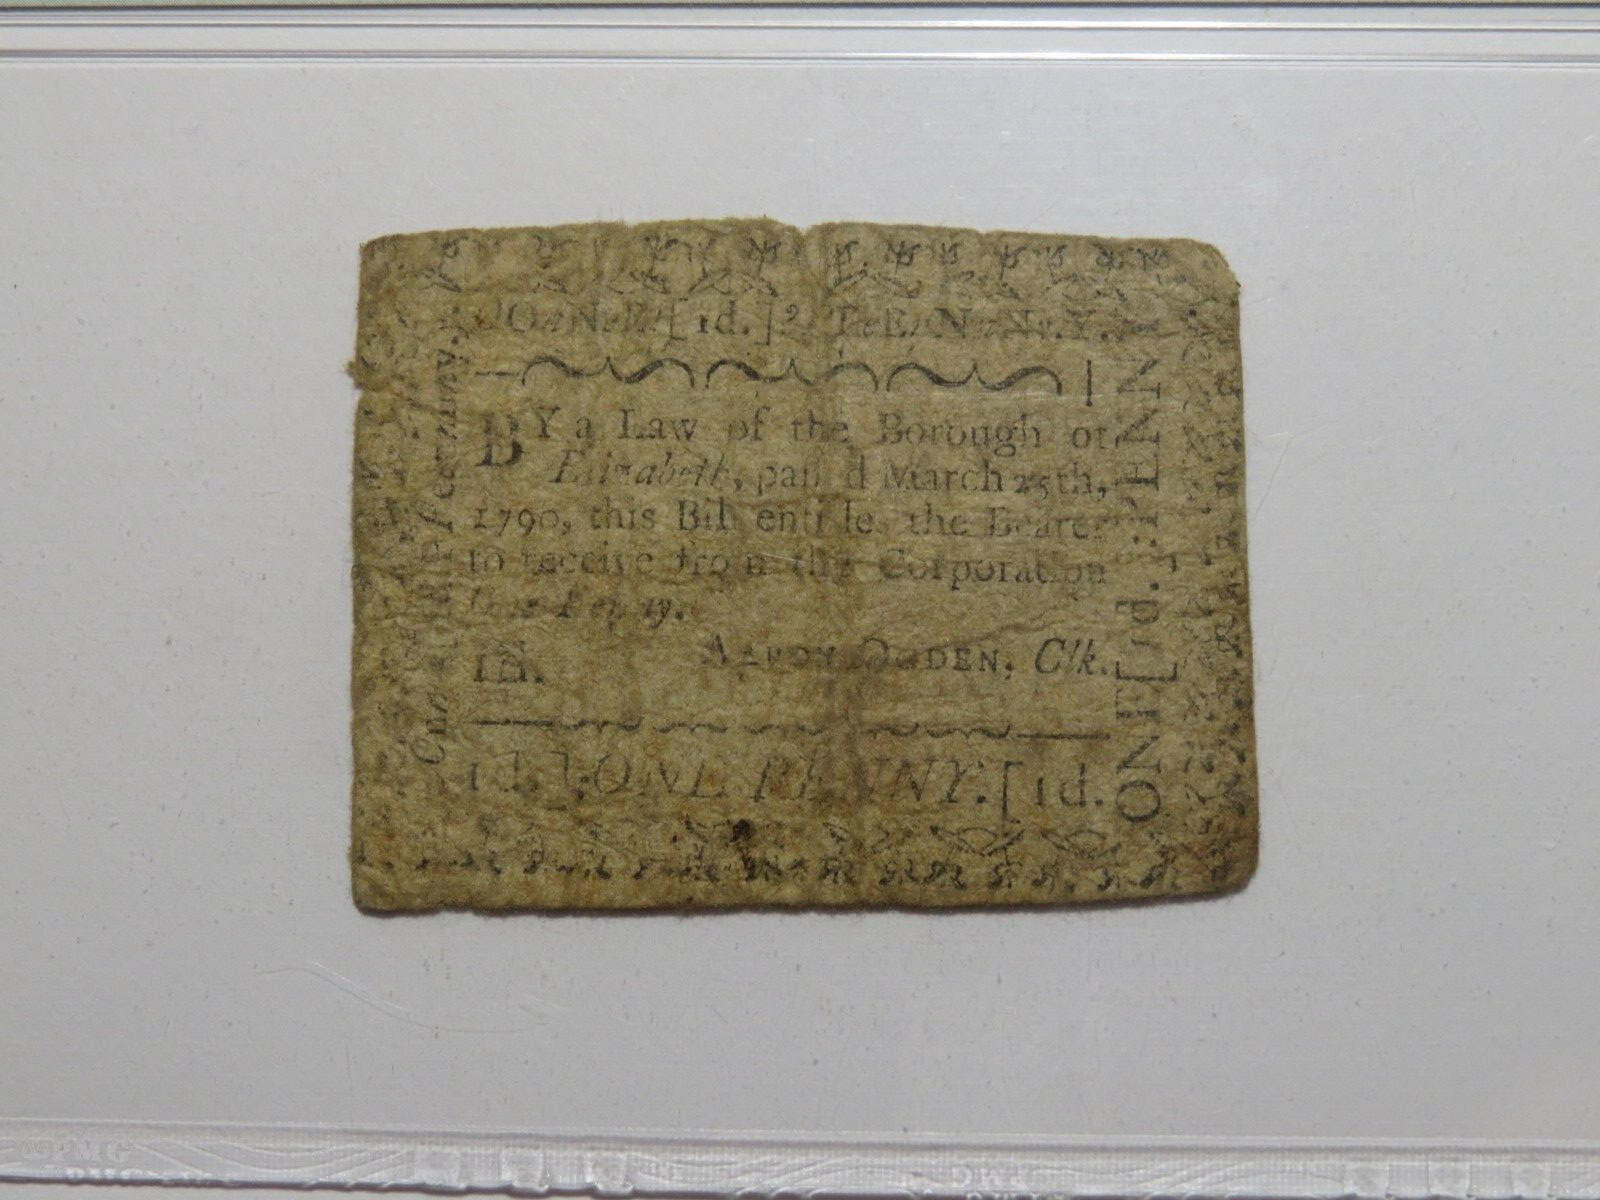 OnNeE.[1d.], PeEnNnNy.Y.
BY a Law of the Borough of
Elizabeth, passed March 25th,
1790, this Bill entitles the Bearer
to receive from the Corporation
One Penny.
1d. AARON OGDEN, Clk.
1d.]:ONE PENNY:[1d.
ONE[1d.]:PENN
PMG